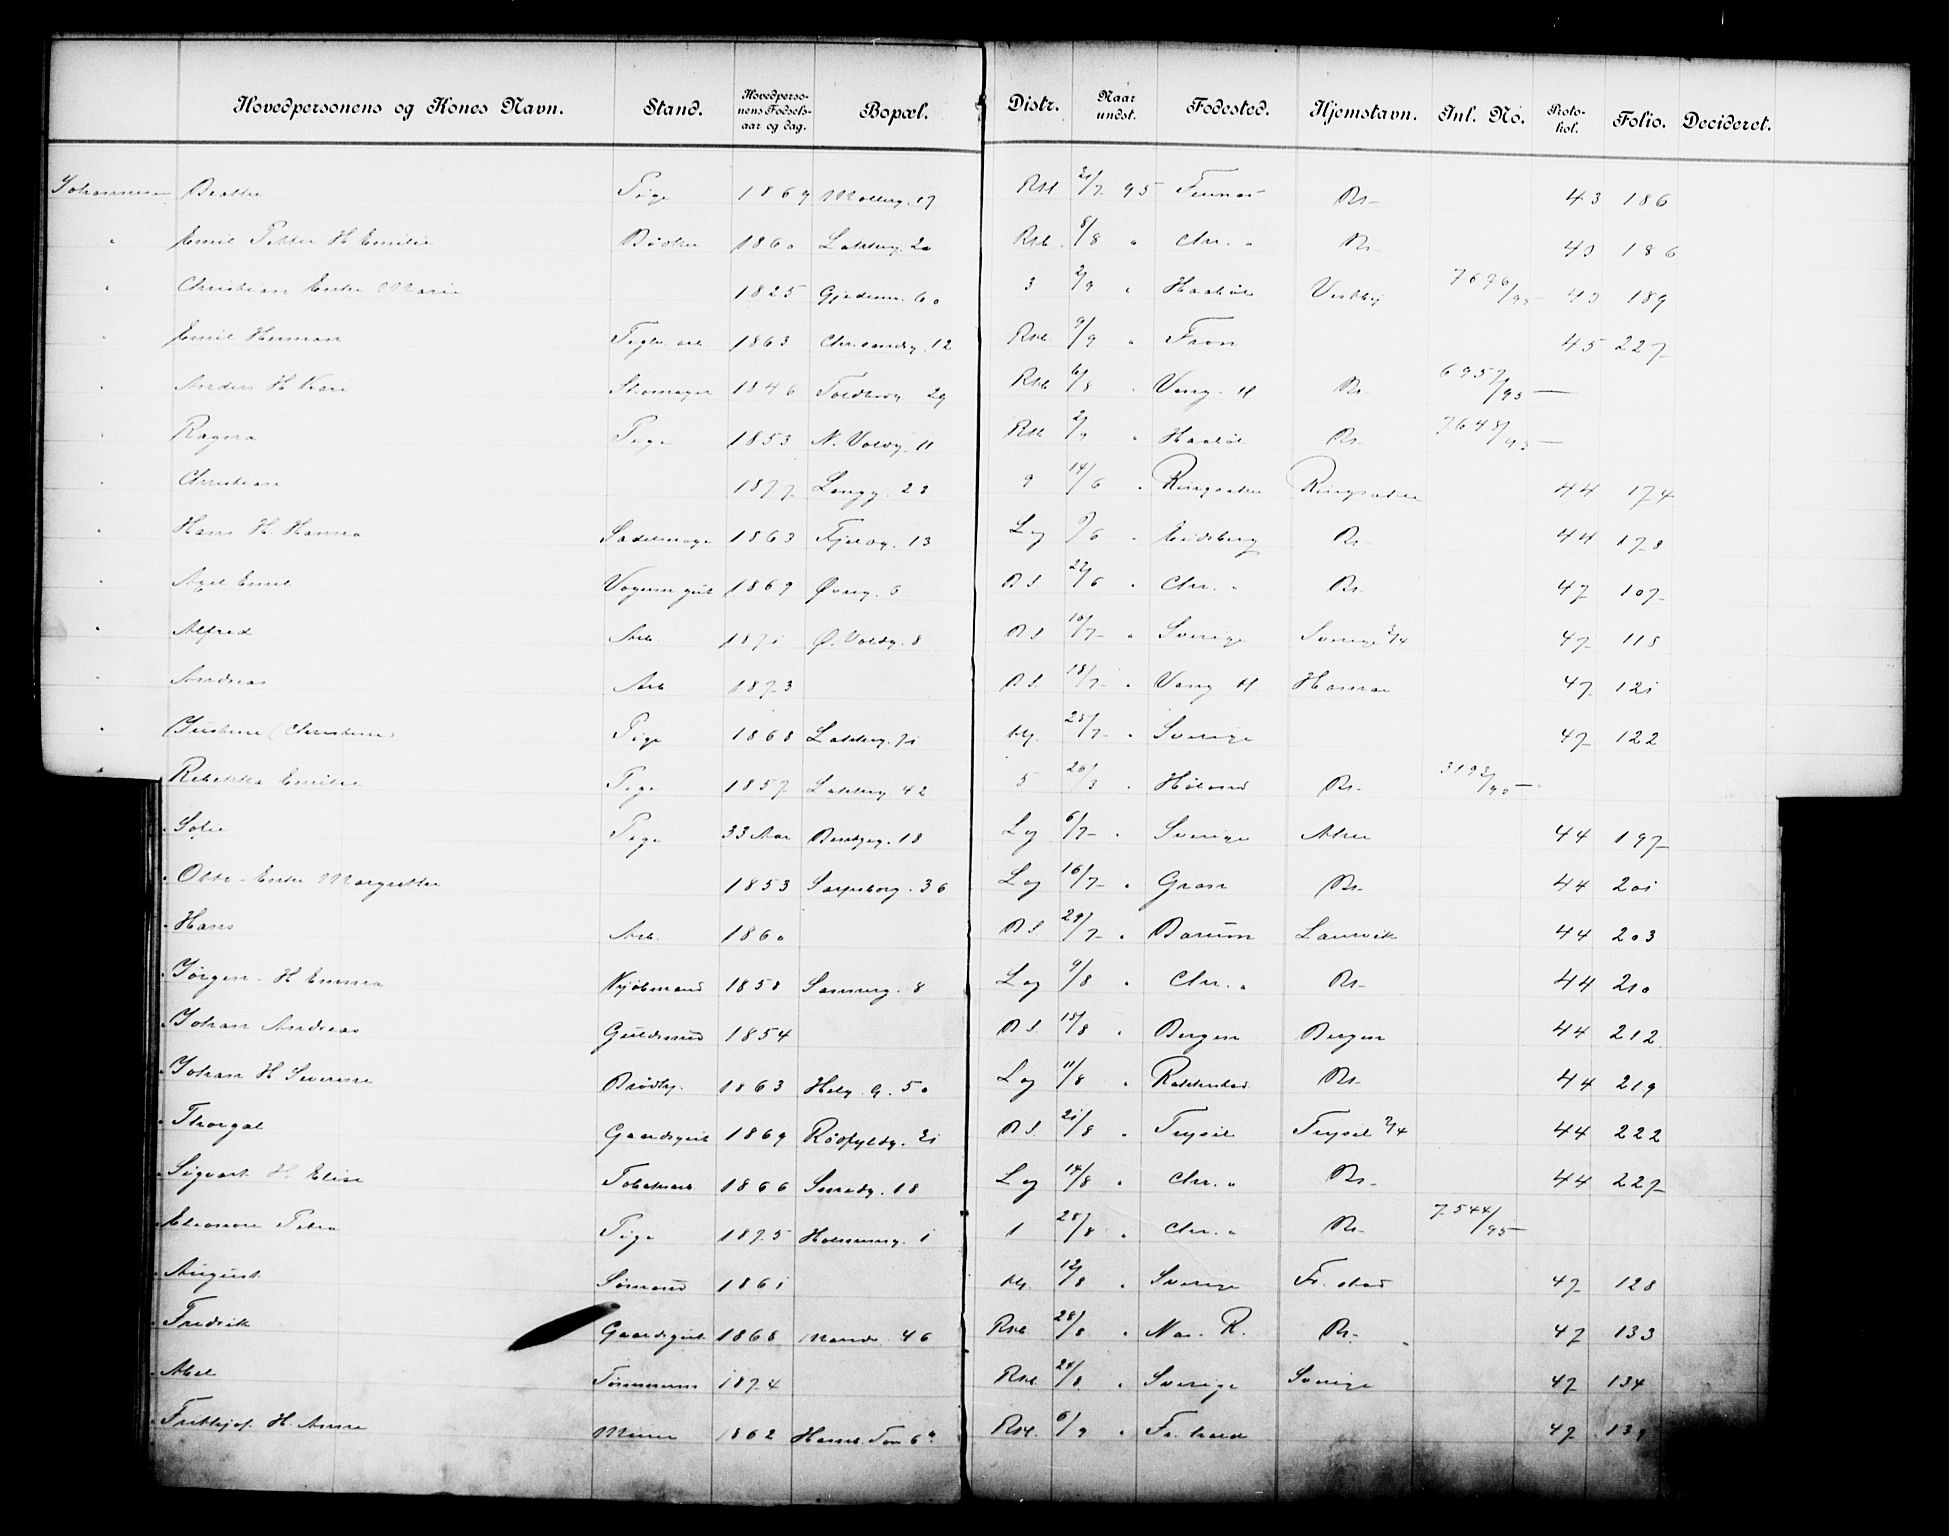 Hovedpersonens og Kones Navn. Stand. Hovedpersonens Fødselsaar og dag. Bopæl. Distr. Naar undst. Fødested. Hjemstavn. Inl. No. Protokol. Folio. Decideret.
Johannesen Beathe Pige 1869 Møllerg. 17 Rst 95 Rs- 43 186
" Emil Petter H Emilie Bødker 1860 Lakkeg. 20 Rst. 8/8 " Chr. " Rs- 43 186
" Christian Enke Marie 1825 60 3 2/9 " Haabøl Vestby 7676/95 - 43 189
" Emil Herman Teglv. arb 1863 Chr.sandsg. 12 Rst. 9/9 " Fron 45 227
" Anders H Kari Skomager 1846 Toldbodg. 29 Rst 6/8 " Vang. H Rs- 6957/95 -
" Ragna Pige 1853 N. Voldg. 11 Rst. 2/9 " Haabøl Rs- 7648/95 -
" Christian 1877 Langg. 23 9 14/6 " Ringsaker Ringsaker 44 174
" Hans H. Hanna Sadelmager 1863 13 Lag /6 " Eidsberg Rs- 44 173
" Axel Emil Vognmgut 1869 Øvreg. 6 B S 22/6 " Chr. " Rs- 47 107
" Alfred Arb. 1871 Ø. Voldg. 8 B S 10/7 " Sverige Sverige 47 118
" Andreas Arb 1873 B S 18/7 " Vang H. Hamar 47 121
" Justine (Christine) Pige 1868 Lakkeg. 71 25/7 " Sverige 47 122
" Rebekka Emilie Pige 1857 Lakkeg. 42 5 26/3 " Høland Rs- 3193/95 -
" Sofie Pige 33 Aar 18 Lag 6/7 " Sverige Aker 44 197
" Otto - Enke Margrethe 1853 Sarpsborg. 36 Lag 16/7 " Gran Rs- 44 201
" Hans Arb. 1860 B S. 29/7 " Bærum Laurvik 44 203
" Jørgen - H Emma Kjøbmand 1858 8 Lag 9/8 " Chr. " Rs- 44 210
" Johan Andreas Guldsmed 1854 B S. 15/8 " Bergen Bergen 44 212
" Johan H Severine 1863 Helg. g. 50 Lag 11/8 " Rakkestad Rs- 44 219
" Thorgal Gaardsgut 1869 Rødfyldg. 21 B S. 21/8 " Trysil Trysil 44 222
" Sigvart H Elise 1866 Smedg. 18 Lag 14/8 " Chr. " Rs- 44 227
" Eleonore Petra Pige 1875 1 1 28/8 " Chr. " Rs- 7544/95 -
" August Sømand 1861 12/8 " Sverige Fr. stad 47 128
" Fredrik Gaardsgut 1868 46 Rst 28/8 " Nes. R. Rs- 47 133
" Abel Tømmerm 1874 Rst. 24/8 " Sverige Sverige 47 134
" Frithjof. H. Anna Murer 1862 Rst. 6/9 " 47